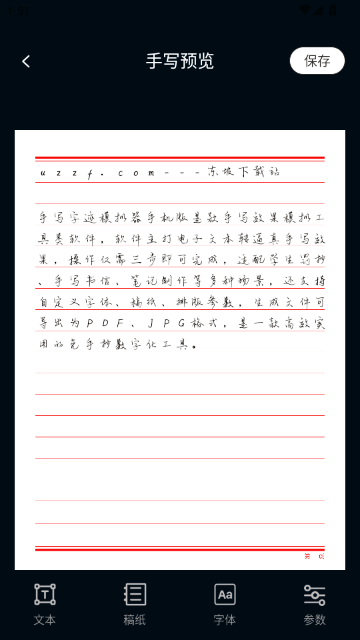 手写预览
保存
uzzf.com---东坡下载站
手写字迹模拟器手机版是款手写效果模拟工
具类软件，软件主打电子文本转逼真手写效
果，操作仅需三步即可完成，适配学生写抄
、手写书信、笔记制作等多种场景，还支持
自定义字体、稿纸、排版参数，生成文件可
导出为PDF、JPG格式，是一款高效实
用的免手抄数字化工具。
第 页
文本
稿纸
字体
参数